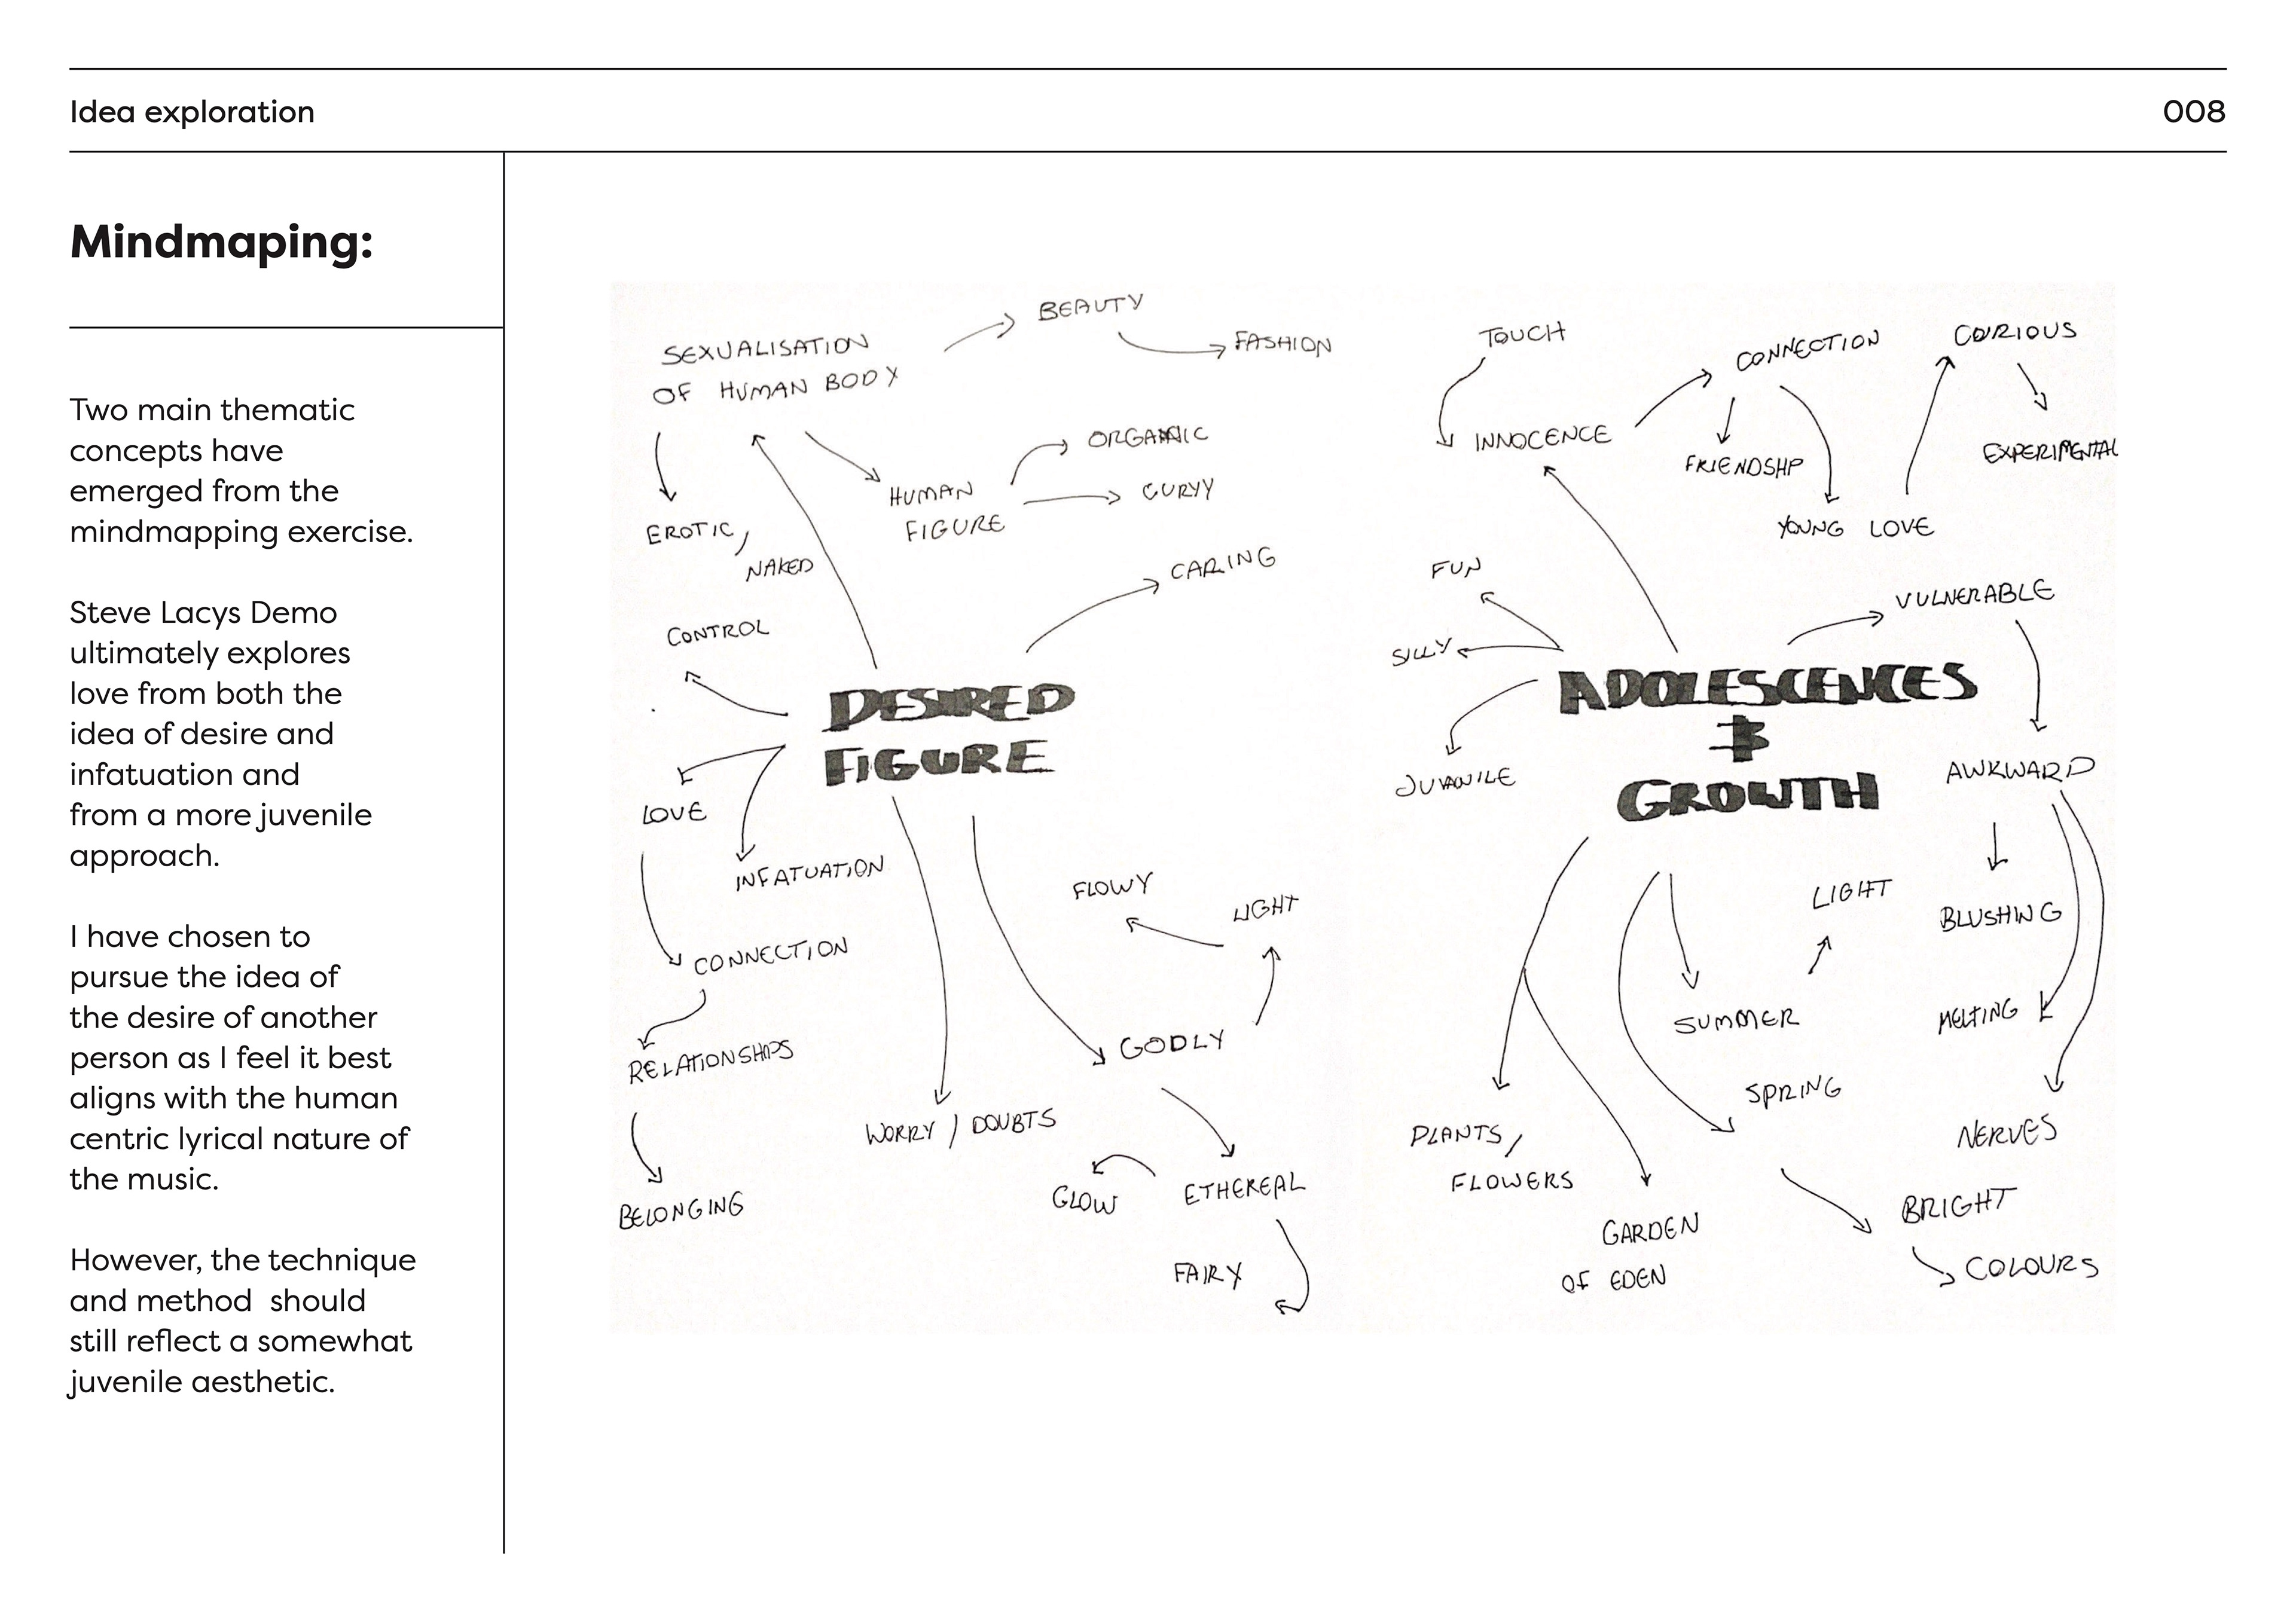 Idea exploration
008
Mindmaping:
Two main thematic
concepts have
emerged from the
mindmapping exercise.
Steve Lacys Demo
ultimately explores
love from both the
idea of desire and
infatuation and
from a more juvenile
approach.
I have chosen to
pursue the idea of
the desire of another
person as I feel it best
aligns with the human
centric lyrical nature of
the music.
However, the technique
and method  should
still reflect a somewhat
juvenile aesthetic.
BEAUTY
FASHION
SEXUALISATION
OF HUMAN BODY
ORGANIC
CURVY
HUMAN
FIGURE
EROTIC,
NAKED
CARING
CONTROL
DESIRED
FIGURE
LOVE
INFATUATION
FLOWY
LIGHT
CONNECTION
GODLY
RELATIONSHIPS
WORRY / DOUBTS
GLOW
ETHEREAL
BELONGING
FAIRY
TOUCH
CONNECTION
CURIOUS
INNOCENCE
FRIENDSHP
EXPERIMENTAL
YOUNG LOVE
FUN
VULNERABLE
SILLY
ADOLESCENCES
&
GROWTH
JUVANILE
AWKWARD
LIGHT
BLUSHING
SUMMER
MELTING
SPRING
PLANTS/
FLOWERS
NERVES
GARDEN
OF EDEN
BRIGHT
COLOURS